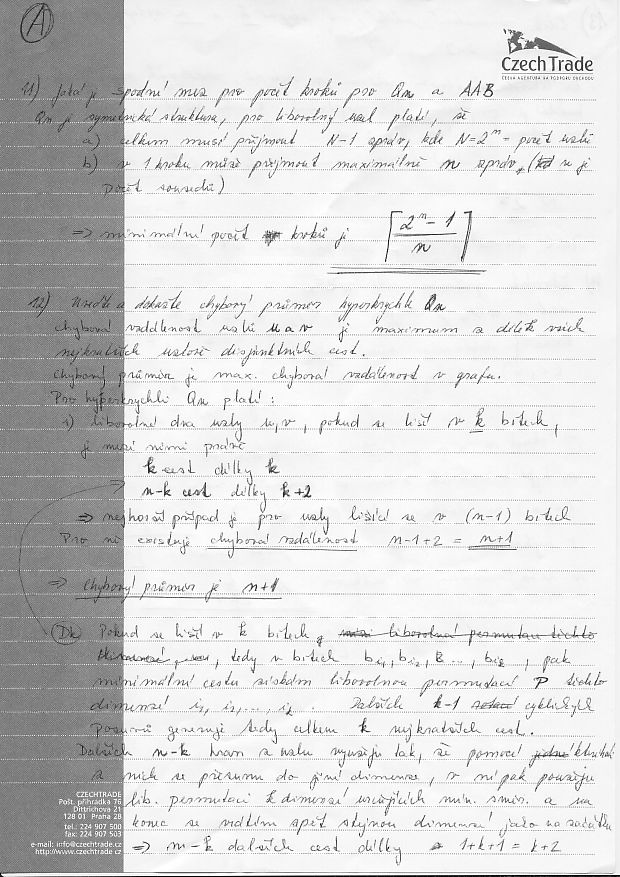 A
Czech Trade
ČESKÁ AGENTURA NA PODPORU OBCHODU
11) Jaká je spodní mez pro počet kroků pro Qn a AAB
Qn je symetrická struktura, pro libovolný uzel platí, že
a) celkem musí přijmout N-1 zpráv, kde N=2^n = počet uzlů
b) v 1 kroku může přijmout maximálně n zpráv, (
počet sousedů)
=> minimální počet kroků je ⌈(2^n - 1)/n⌉
12) Určete a dokažte chybový průměr hyperkrychle Qn
chybová vzdálenost uzlů u a v je maximum z délek všech
nejkratších uzlově disjunktních cest.
Chybový průměr je max. chybová vzdálenost v grafu.
Pro hyperkrychli Qn platí:
i) libovolné dva uzly u, v, pokud se liší v k bitech,
je mezi nimi právě
k cest délky k
n-k cest délky k+2
=> nejhorší případ je pro uzly lišící se v (n-1) bitech
Pro ně existuje chybová vzdálenost n-1+2 = n+1
=> Chybový průměr je n+1
Dk Pokud se liší v k bitech, mezi libovolnou permutací těchto
tedy v bitech bi1, bi2, ..., bik, pak
minimální cestu získám libovolnou permutací P těchto
dimenzí i1, i2, ..., ik. Dalších k-1 cyklických
posuvů generuje tedy celkem k nejkratších cest.
Dalších n-k hran z uzlu využiju tak, že pomocí
z nich se přesunu do jiné dimenze, v ní pak použiju
lib. permutaci k dimenzí určujících min. směr. a na
konec se vrátím zpět stejnou dimenzí jako na začátku
=> n-k dalších cest délky 1+k+1 = k+2
CZECHTRADE
Pošt. přihrádka 76
Dittrichova 21
128 01 Praha 28
tel.: 224 907 500
fax: 224 907 503
e-mail: info@czechtrade.cz
http://www.czechtrade.cz